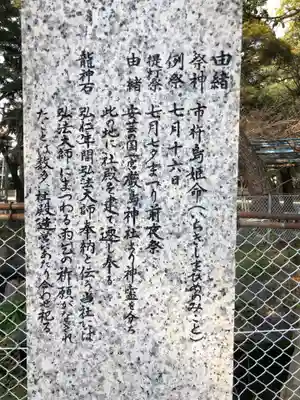 由緒
祭神 市杵島姫命(いちきしまひめのみこと)
例祭 七月十六日
提灯祭 七月七夕まつり前夜祭
由緒 安芸の国厳島神社より神霊を分ち
此の地に社殿を建て遷し奉る
龍神石 弘仁年間弘法大師奉納と伝う当社では
弘法大師にまつわる雨乞の祈願がなされ
たことは数多く社殿造営にあたり合わせ祀る